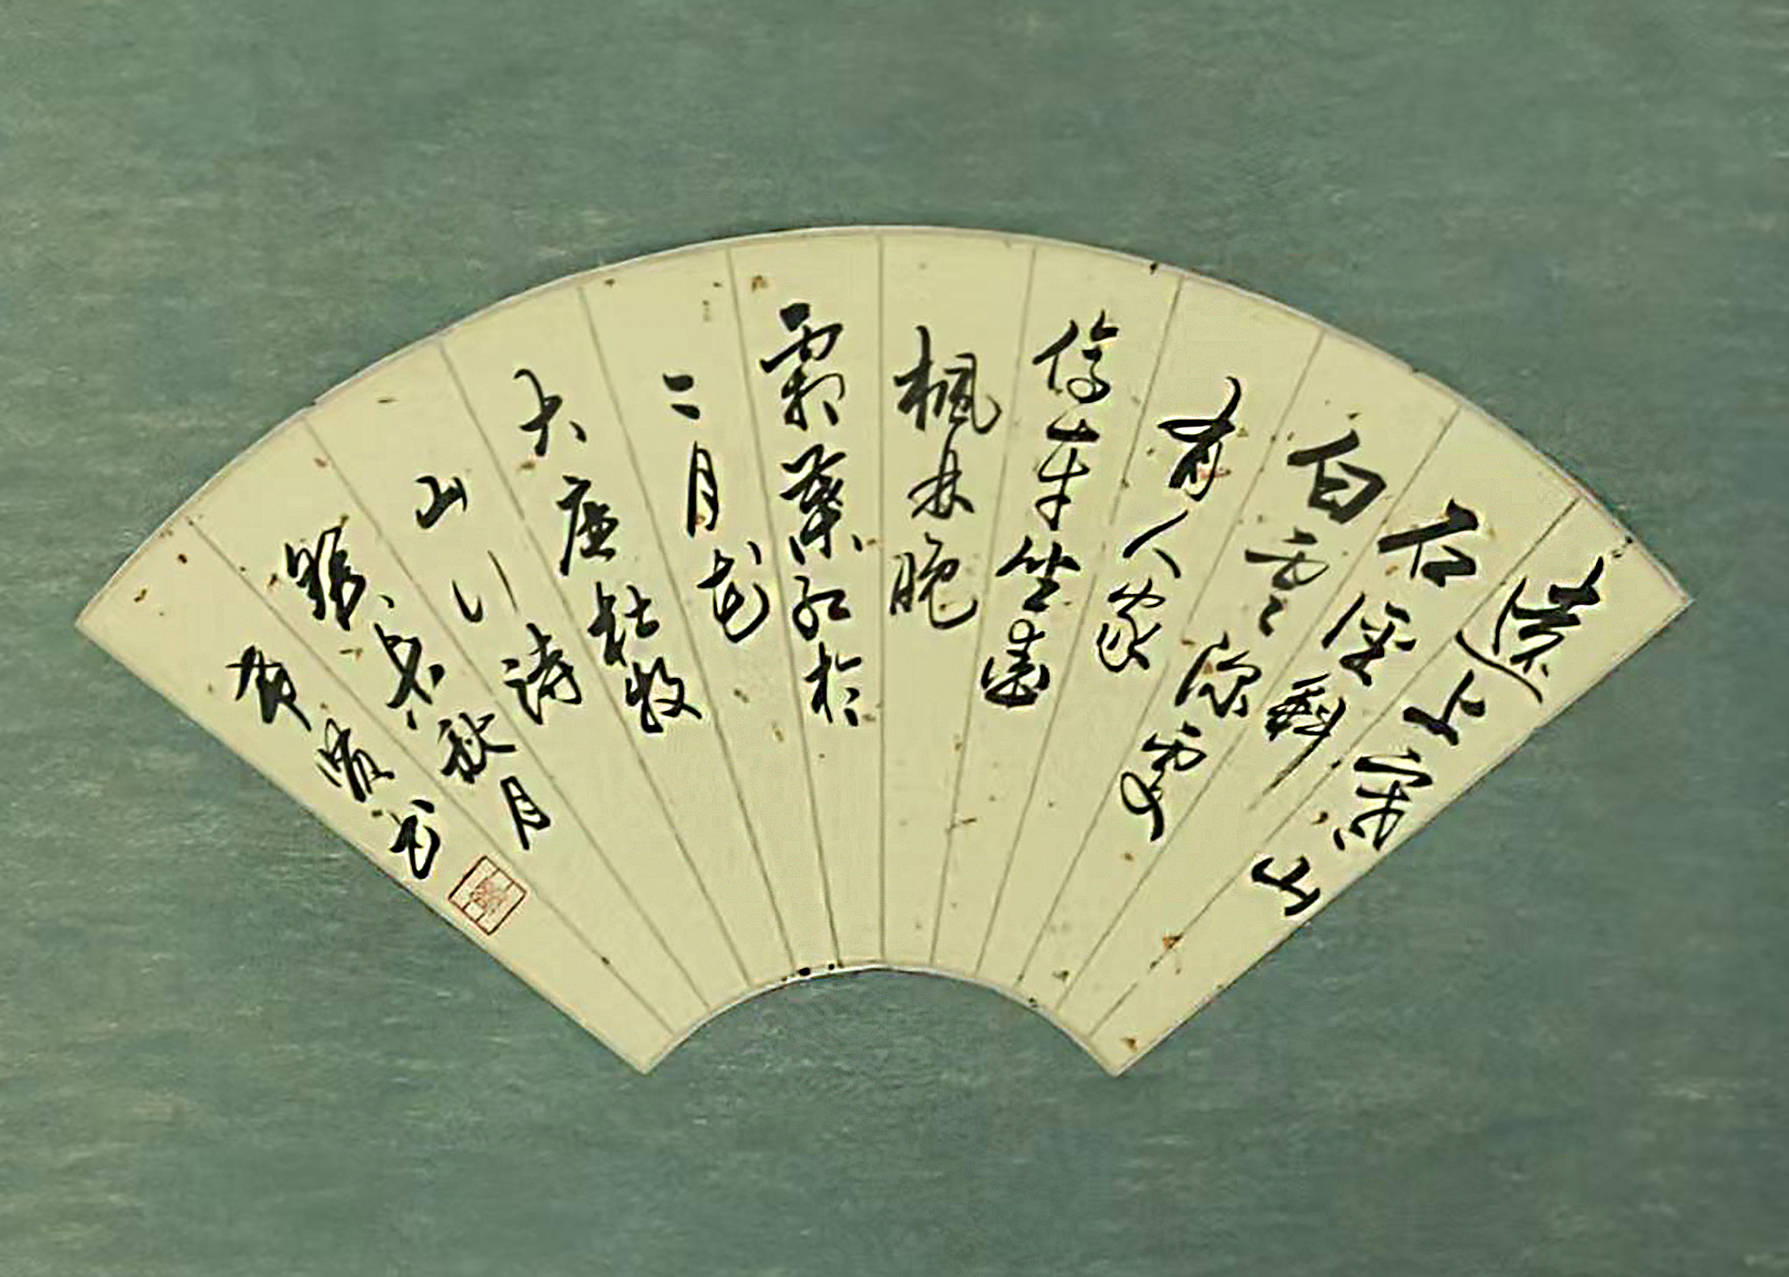 遠上寒山
石徑斜
白雲深處
有人家
停車坐愛
楓林晚
霜葉紅於
二月花
大唐杜牧
山行詩
秋月
書